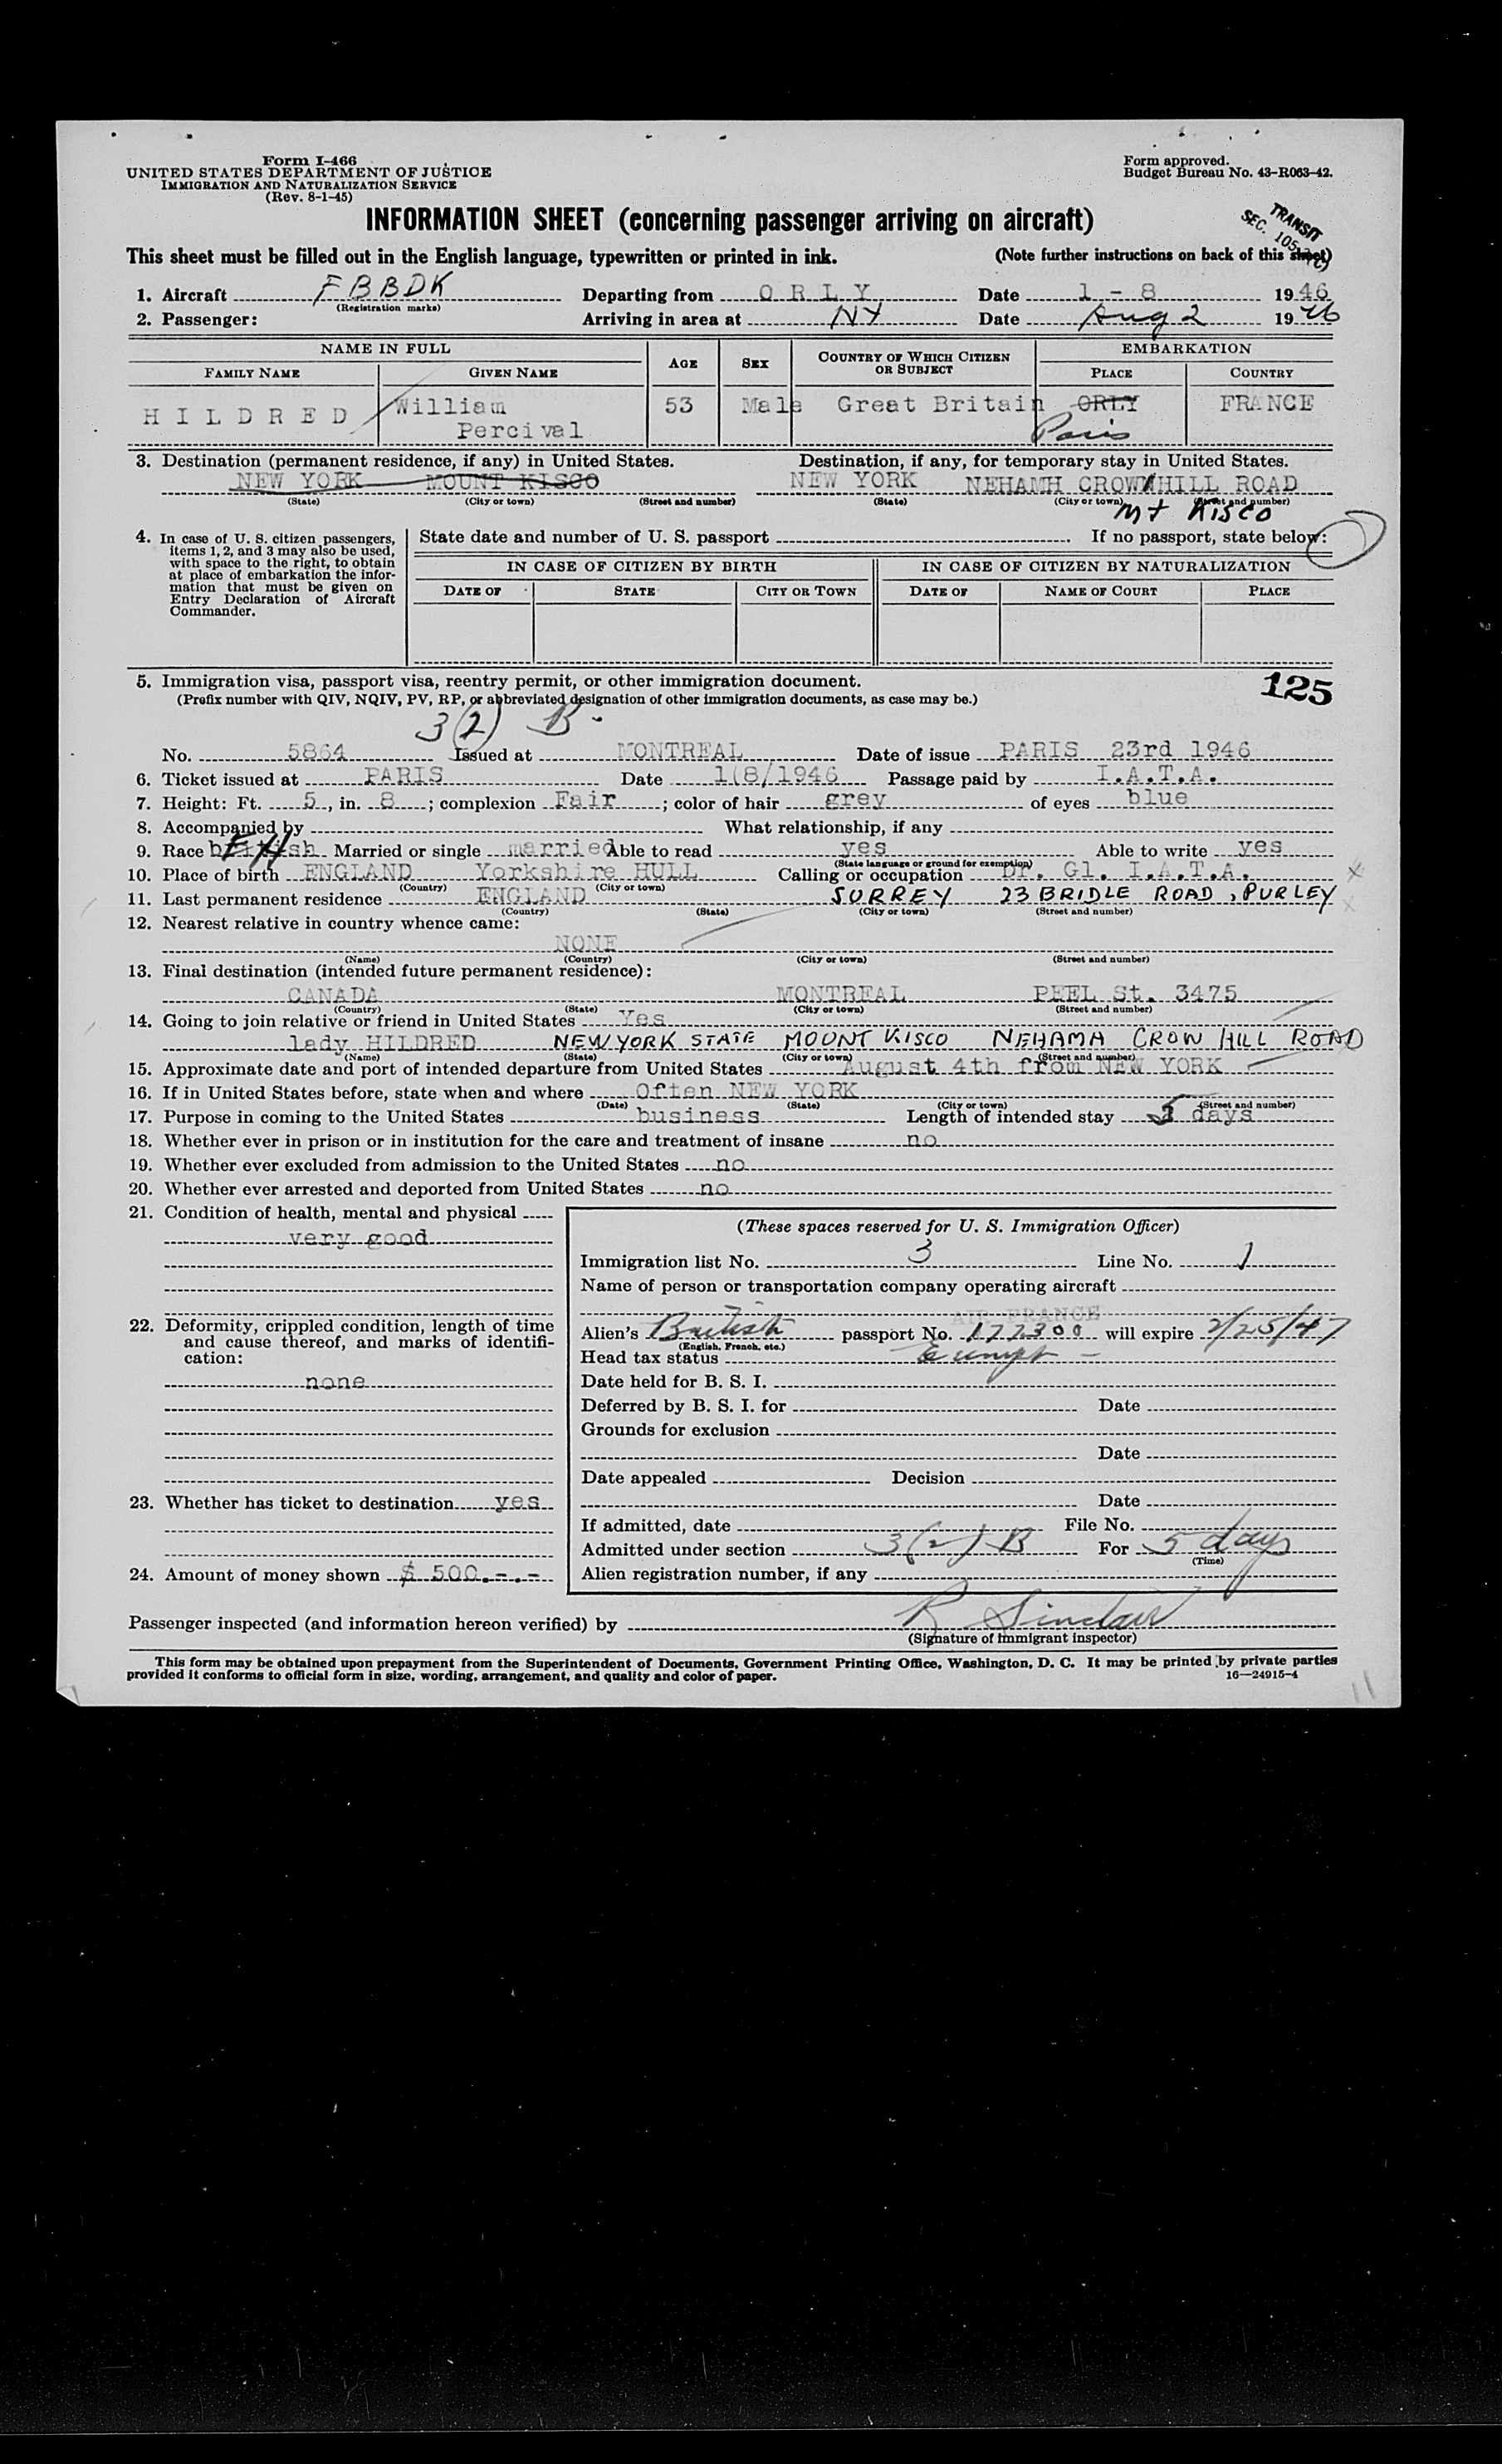 Form I-466
UNITED STATES DEPARTMENT OF JUSTICE
IMMIGRATION AND NATURALIZATION SERVICE
(Rev. 8-1-45)
Form approved.
Budget Bureau No. 43-R063-42.
INFORMATION SHEET (concerning passenger arriving on aircraft)
TRANSIT
SEC. 105
This sheet must be filled out in the English language, typewritten or printed in ink. (Note further instructions on back of this sheet)
1. Aircraft FBBDK Departing from ORLY Date 1 - 8 1946
(Registration marks)
2. Passenger: Arriving in area at NY Date Aug 2 1946
NAME IN FULL AGE SEX COUNTRY OF WHICH CITIZEN OR SUBJECT EMBARKATION
FAMILY NAME GIVEN NAME PLACE COUNTRY
HILDRED William Percival 53 Male Great Britain ORLY Paris FRANCE
3. Destination (permanent residence, if any) in United States. Destination, if any, for temporary stay in United States.
NEW YORK MOUNT KISCO NEW YORK NEHAMH CROW HILL ROAD
(State) (City or town) (Street and number) (State) (City or town) (Street and number)
Mt KISCO
4. In case of U. S. citizen passengers, items 1, 2, and 3 may also be used, with space to the right, to obtain at place of embarkation the information that must be given on Entry Declaration of Aircraft Commander.
State date and number of U. S. passport If no passport, state below:
IN CASE OF CITIZEN BY BIRTH IN CASE OF CITIZEN BY NATURALIZATION
DATE OF STATE CITY OR TOWN DATE OF NAME OF COURT PLACE
5. Immigration visa, passport visa, reentry permit, or other immigration document. 125
(Prefix number with QIV, NQIV, PV, RP, or abbreviated designation of other immigration documents, as case may be.)
3(2) B
No. 5864 Issued at MONTREAL Date of issue PARIS 23rd 1946
6. Ticket issued at PARIS Date 1(8/1946 Passage paid by I.A.T.A.
7. Height: Ft. 5, in. 8; complexion Fair; color of hair grey of eyes blue
8. Accompanied by What relationship, if any
9. Race british EH Married or single married Able to read yes Able to write yes
(State language or ground for exemption)
10. Place of birth ENGLAND Yorkshire HULL Calling or occupation Dr. Gl. I.A.T.A.
(Country) (City or town)
11. Last permanent residence ENGLAND SURREY 23 BRIDLE ROAD, PURLEY
(Country) (State) (City or town) (Street and number)
12. Nearest relative in country whence came:
NONE
(Name) (Country) (City or town) (Street and number)
13. Final destination (intended future permanent residence):
CANADA MONTREAL PEEL St. 3475
(Country) (State) (City or town) (Street and number)
14. Going to join relative or friend in United States Yes
lady HILDRED NEW YORK STATE MOUNT KISCO NEHAMA CROW HILL ROAD
(Name) (State) (City or town) (Street and number)
15. Approximate date and port of intended departure from United States August 4th from NEW YORK
16. If in United States before, state when and where Often NEW YORK
(Date) (State) (City or town) (Street and number)
17. Purpose in coming to the United States business Length of intended stay 5 days
18. Whether ever in prison or in institution for the care and treatment of insane no
19. Whether ever excluded from admission to the United States no
20. Whether ever arrested and deported from United States no
21. Condition of health, mental and physical
very good
22. Deformity, crippled condition, length of time and cause thereof, and marks of identification:
none
23. Whether has ticket to destination yes
24. Amount of money shown $ 500.-.-
(These spaces reserved for U. S. Immigration Officer)
Immigration list No. 3 Line No. 1
Name of person or transportation company operating aircraft
AIR FRANCE
Alien's British passport No. 177300 will expire 2/25/47
(English, French, etc.)
Head tax status Exempt -
Date held for B. S. I.
Deferred by B. S. I. for Date
Grounds for exclusion
Date
Date appealed Decision
Date
If admitted, date File No.
Admitted under section 3(2) B For 5 days
(Time)
Alien registration number, if any
Passenger inspected (and information hereon verified) by R Sinclair
(Signature of immigrant inspector)
This form may be obtained upon prepayment from the Superintendent of Documents, Government Printing Office, Washington, D. C. It may be printed by private parties
provided it conforms to official form in size, wording, arrangement, and quality and color of paper. 16—24915-4
11